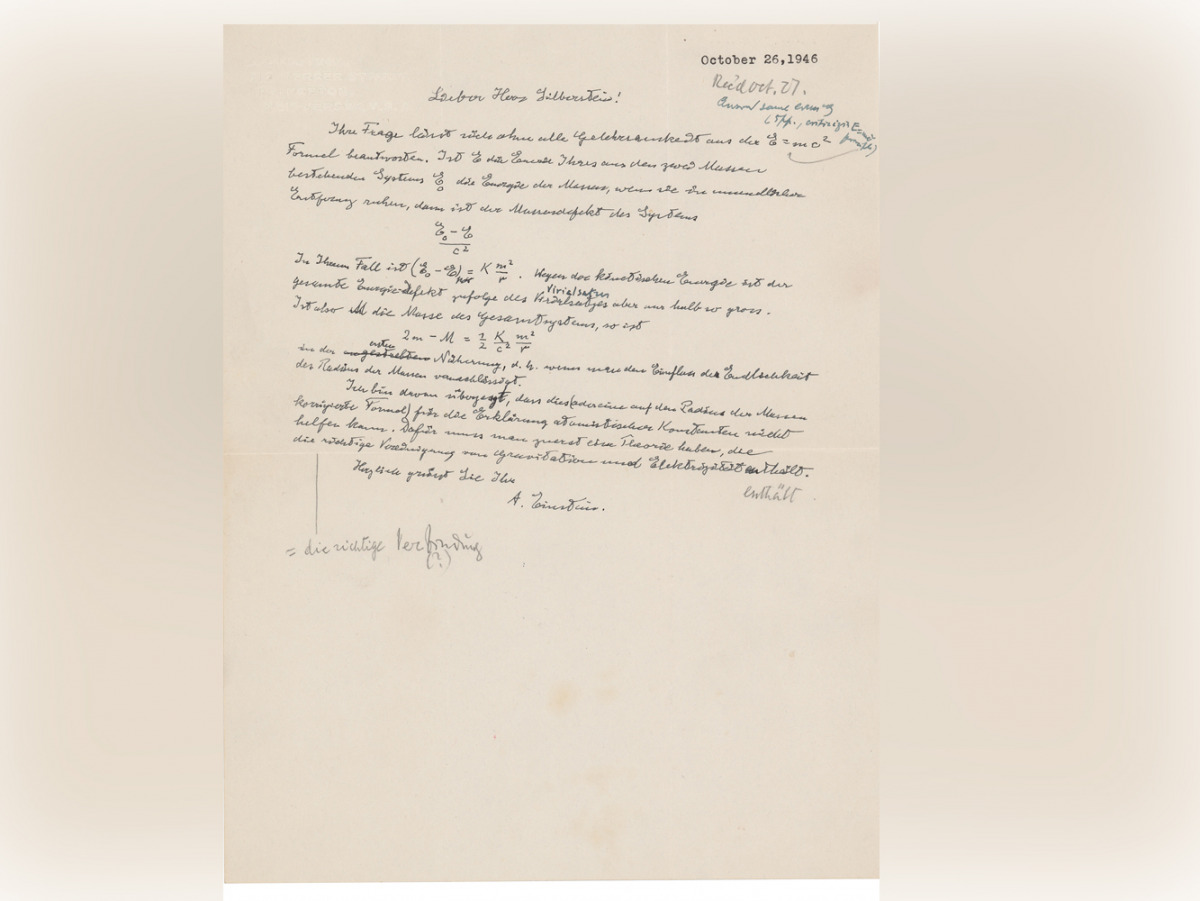 October 26,1946
Rec'd oct. 27.
Answ'd same
Lieber Herr Silberstein!
Ihre Frage lässt sich ohne alle Gelehrsamkeit aus der E = mc²
Formel beantworten. Ist E die Energie Ihres aus den zwei Massen
bestehenden Systems E₀ die Energie der Massen, wenn sie in unendlicher
Entfernung ruhen, dann ist der Massendefekt des Systems
E₀ – E
c²
In Ihrem Fall ist (E₀ – E) = K m²/r . Wegen der kinetischen Energie ist der
Virialsatzes
gesamte Energiedefekt zufolge des Virialsatzes aber nur halb so gross.
Ist also M die Masse des Gesamtsystems, so ist
2m – M = 1/2 K/c² m²/r
ersten
in der Näherung, d. h. wenn man den Einfluss der Endlichkeit
des Radius der Massen vernachlässigt.
Ich bin davon überzeugt, dass dies (oder eine auf den Radius der Massen
korrigierte Formel) für die Erklärung atomistischer Konstanten nicht
helfen kann. Dafür muss man zuerst eine Theorie haben, die
die richtige Vereinigung von Gravitation und Elektrizität enthält.
enthält
Herzlich grüsst Sie Ihr
A. Einstein.
= die richtige Verbindung
(?)